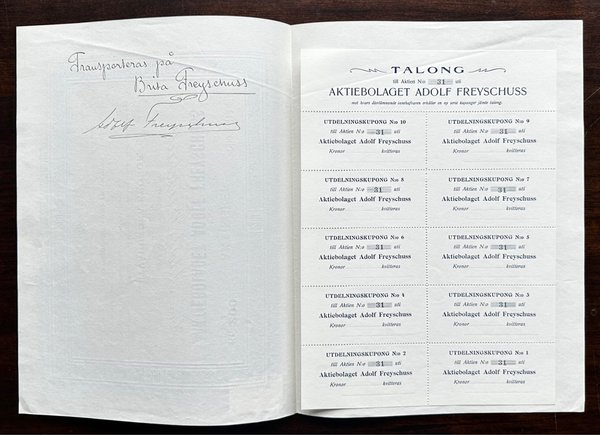 Transporteras på
Brita Freyschuss
Adolf Freyschuss
TALONG
till Aktien N:o 31 uti
AKTIEBOLAGET ADOLF FREYSCHUSS
mot hvars återlämnande innehafvaren erhåller en ny serie kuponger jämte talong.
UTDELNINGSKUPONG N:o 10
till Aktien N:o 31 uti
Aktiebolaget Adolf Freyschuss
Kronor kvitteras
UTDELNINGSKUPONG N:o 9
till Aktien N:o 31 uti
Aktiebolaget Adolf Freyschuss
Kronor kvitteras
UTDELNINGSKUPONG N:o 8
till Aktien N:o 31 uti
Aktiebolaget Adolf Freyschuss
Kronor kvitteras
UTDELNINGSKUPONG N:o 7
till Aktien N:o 31 uti
Aktiebolaget Adolf Freyschuss
Kronor kvitteras
UTDELNINGSKUPONG N:o 6
till Aktien N:o 31 uti
Aktiebolaget Adolf Freyschuss
Kronor kvitteras
UTDELNINGSKUPONG N:o 5
till Aktien N:o 31 uti
Aktiebolaget Adolf Freyschuss
Kronor kvitteras
UTDELNINGSKUPONG N:o 4
till Aktien N:o 31 uti
Aktiebolaget Adolf Freyschuss
Kronor kvitteras
UTDELNINGSKUPONG N:o 3
till Aktien N:o 31 uti
Aktiebolaget Adolf Freyschuss
Kronor kvitteras
UTDELNINGSKUPONG N:o 2
till Aktien N:o 31 uti
Aktiebolaget Adolf Freyschuss
Kronor kvitteras
UTDELNINGSKUPONG N:o 1
till Aktien N:o 31 uti
Aktiebolaget Adolf Freyschuss
Kronor kvitteras